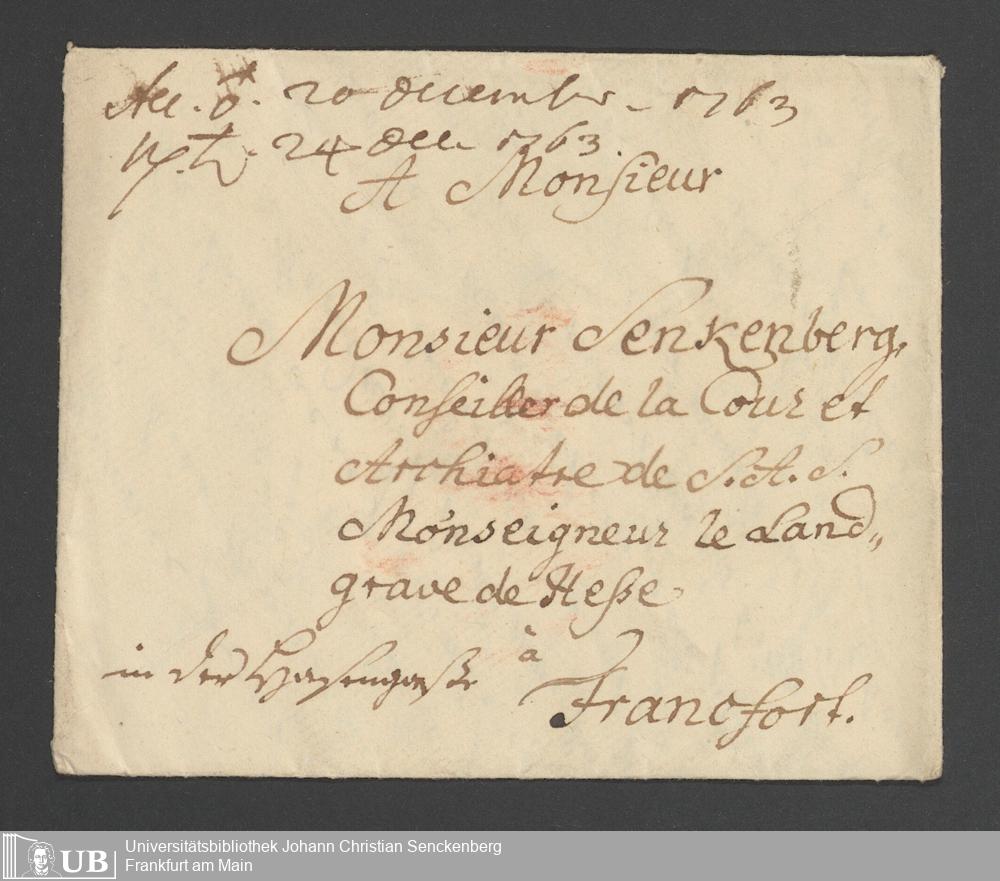 Acc. ♂. 20 december – 1763
♄. 24 dec. 1763.
A Monsieur
Monsieur Senkenberg,
Conseiller de la Cour et
Archiatre de S. A. S.
Monseigneur le Land„
grave de Hesse
in der Hasengaße
à
Francfort.
UB
Universitätsbibliothek Johann Christian Senckenberg
Frankfurt am Main